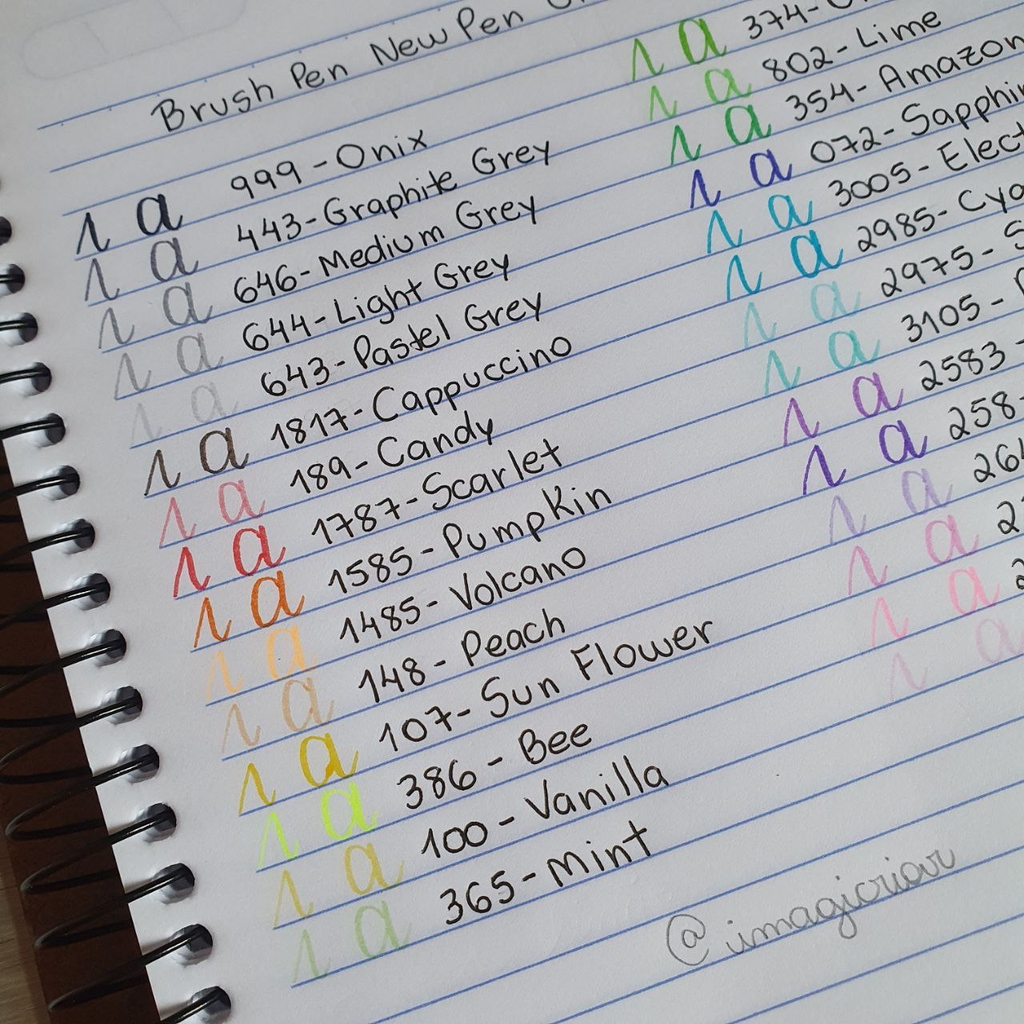 Brush Pen New Pen
1 a 999 - Onix
1 a 443 - Graphite Grey
1 a 646 - Medium Grey
1 a 644 - Light Grey
1 a 643 - Pastel Grey
1 a 1817 - Cappuccino
1 a 189 - Candy
1 a 1787 - Scarlet
1 a 1585 - Pumpkin
1 a 1485 - Volcano
1 a 148 - Peach
1 a 107 - Sun Flower
1 a 386 - Bee
1 a 100 - Vanilla
1 a 365 - Mint
1 a 374 -
1 a 802 - Lime
1 a 354 - Amazon
1 a 072 - Sapphir
1 a 3005 - Elect
1 a 2985 - Cya
1 a 2975 - S
1 a 3105 -
1 a 2583 -
1 a 258 -
1 a 264
1 a 2
1 a 2
1 a
@imagioriar